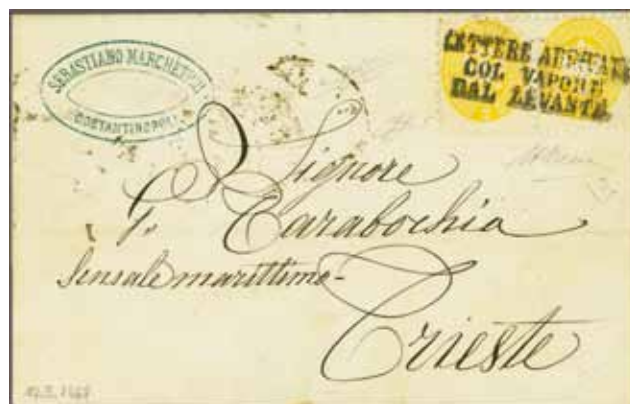 SEBASTIANO MARCHETTI
COSTANTINOPOLI
LETTERE ARRIVATE
COL VAPORE
DAL LEVANTE
Signore
G. Tarabochia
Sensale marittimo -
Trieste